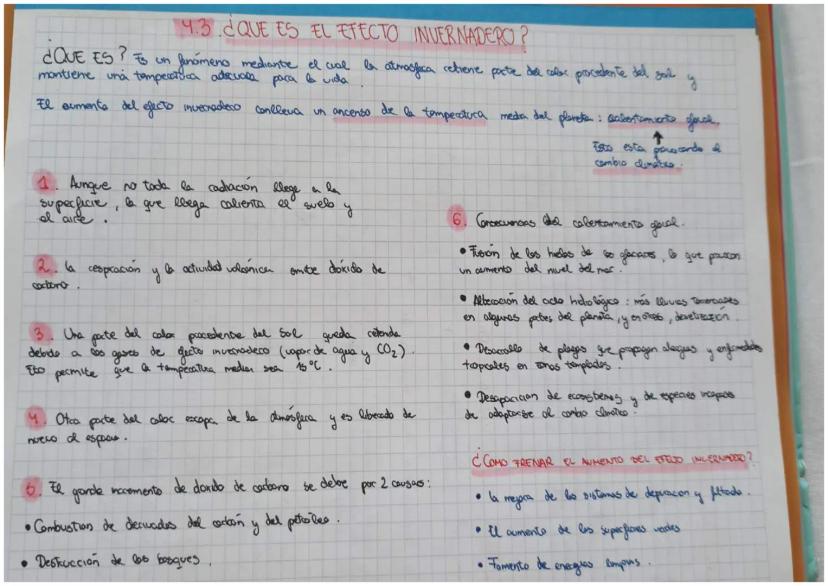 4.3. ¿QUE ES EL EFECTO INVERNADERO?
¿QUE ES? Es un fenómeno mediante el cual la atmosfera retiene parte del calor procedente del sol y
mantiene una temperatura adecuada para la vida.
El aumento del efecto invernadero conlleva un ascenso de la temperatura media del planeta: calentamiento global.
Esto esta provocando el
cambio climático.
1. Aunque no toda la radiación llege a la
superficie, la que llega calienta el suelo y
el aire.
2. la respiración y la actividad volcánica emite dióxido de
carbono.
3. Una parte del calor procedente del Sol queda retenida
debido a los gases de efecto invernadero (vapor de agua y CO2).
Esto permite que la temperatura media sea 15°C.
4. Otra parte del calor escapa de la atmósfera y es liberado de
nuevo al espacio.
5. El grande incremento de dioxido de carbono se debe por 2 causas:
• Combustion de derivados del carbón y del petróleo.
• Destrucción de los bosques.
6. Consecuencias del calentamiento global.
• Fusión de los hielos de los glaciares, lo que provocan
un aumento del nivel del mar.
• Alteración del ciclo hidrológico: más lluvias torrenciales
en algunas partes del planeta, y en otros, desertización.
• Desarrollo de plagas que propagan alergias y enfermedades
tropicales en zonas templadas.
• Desaparicion de ecosistemas y de especies incapaces
de adaptarse al cambio climático.
¿COMO FRENAR EL AUMENTO DEL EFECTO INVERNADERO?
• la mejora de los sistemas de depuracion y filtrado.
• El aumento de las superficies verdes
• Fomento de energias limpias.